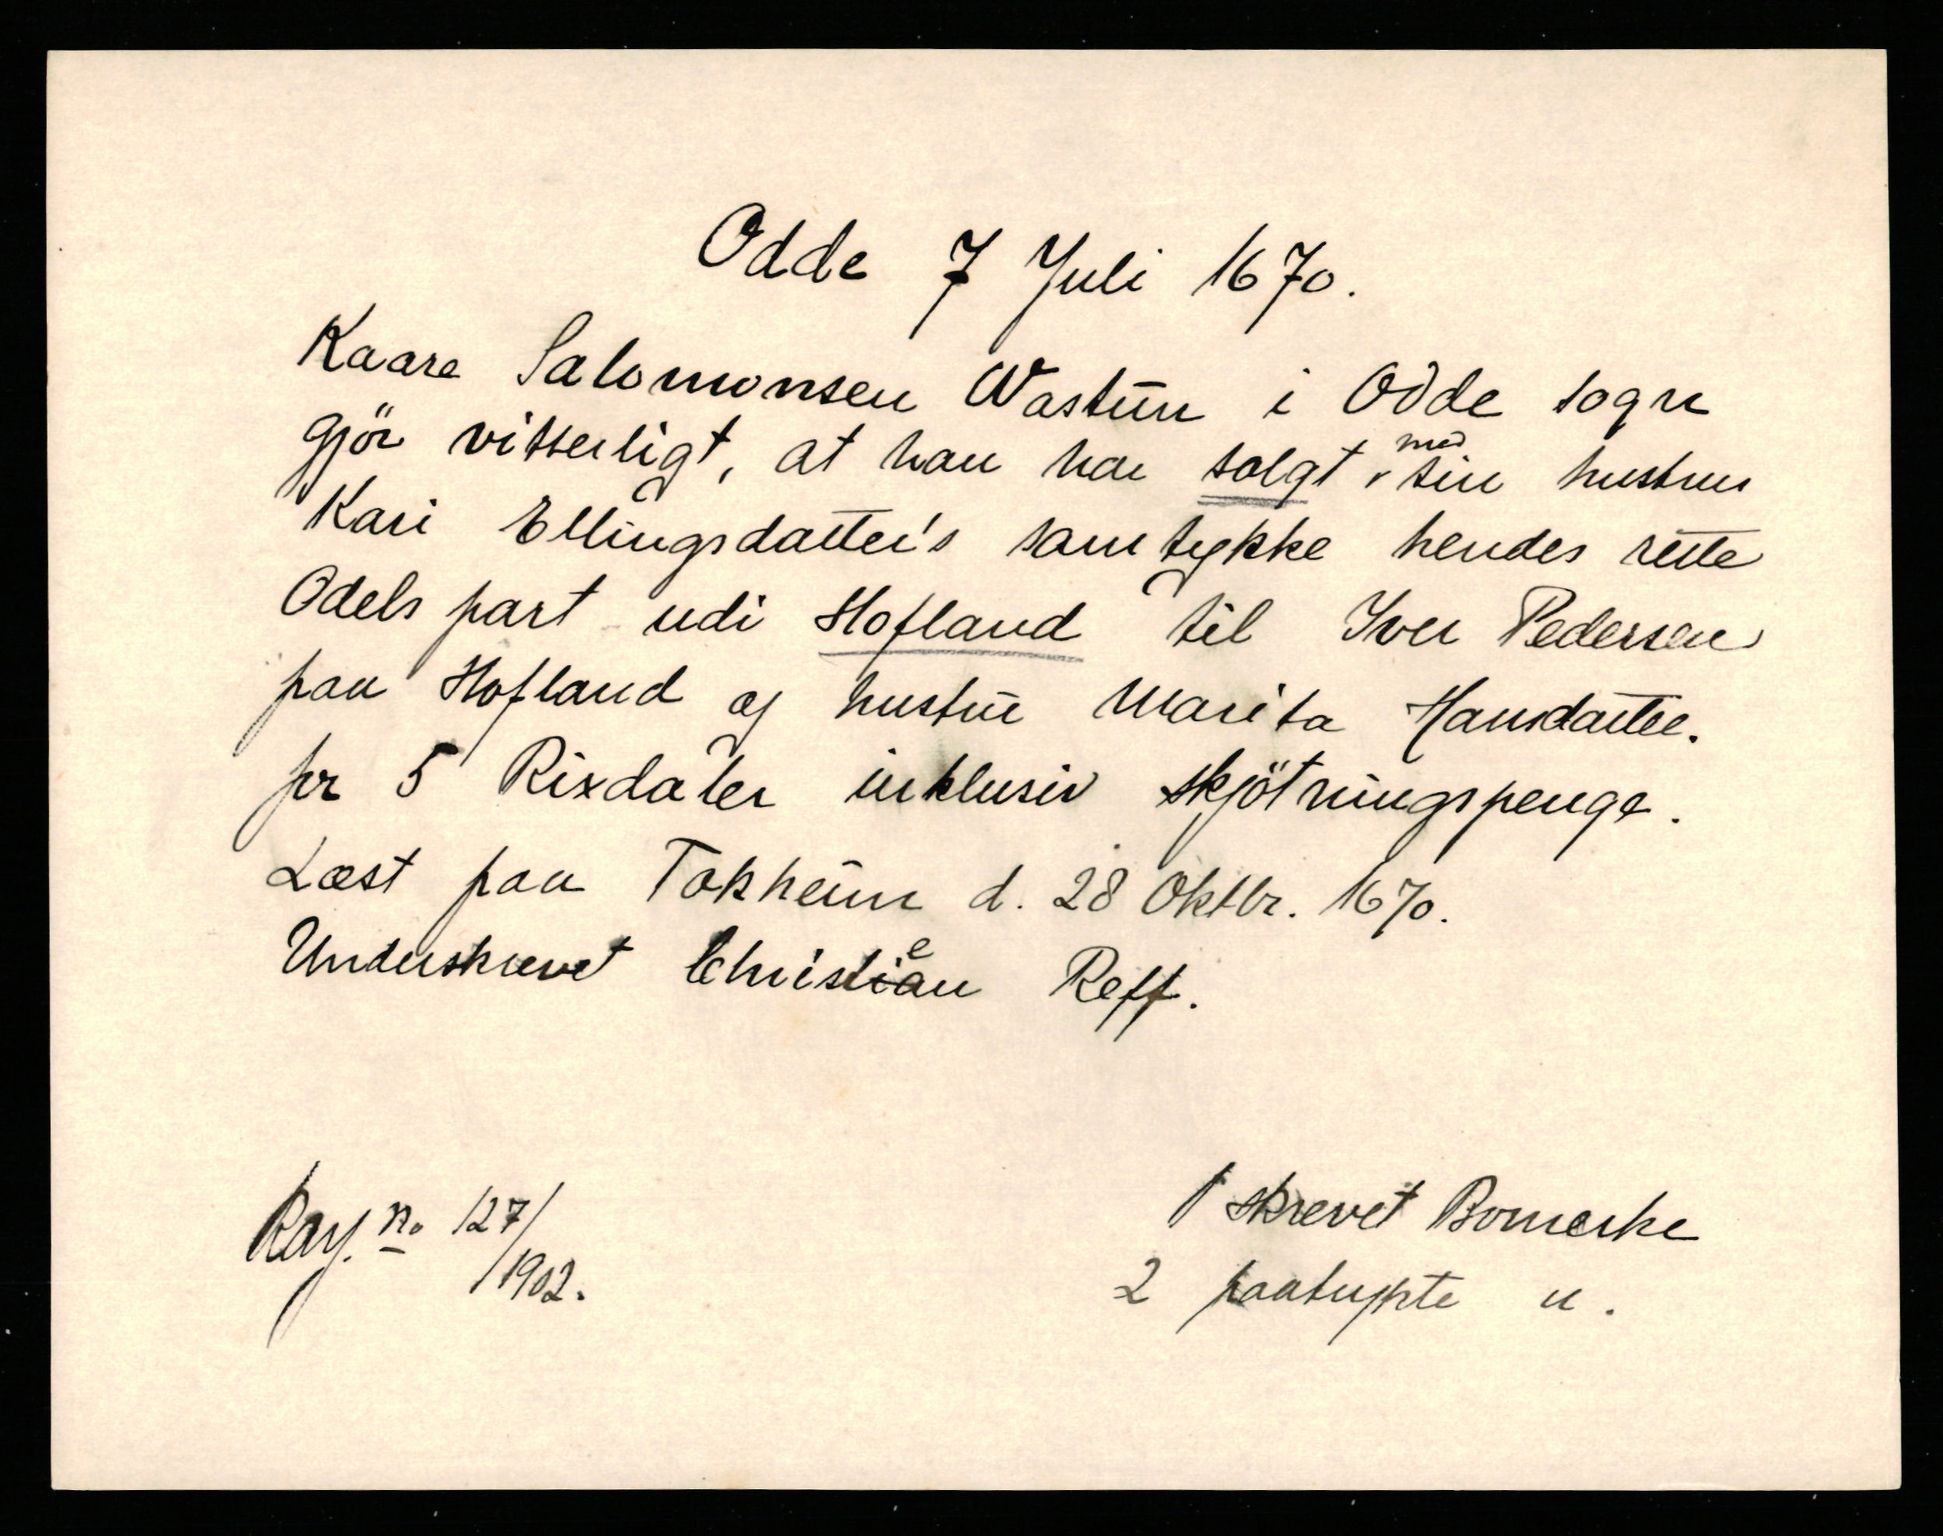 Odde 7 Juli 1670.
Kaare Salomonsen Wastun i Odde sogn
gjör vitterligt, at han har solgt med sin hustru
Kari Ellingsdatter's samtykke hendes rette
Odels part udi Hofland til Iver Pedersen
paa Hofland og hustru Marita Hansdatter.
for 5 Rixdaler inklusiv skjötningspenge.
Læst paa Tokheim d. 28 Oktbr. 1670.
Underskrevet Christen Reff.
Ray. no 127/1902.
1 skrevet Bomerke
2 paatrykte u.